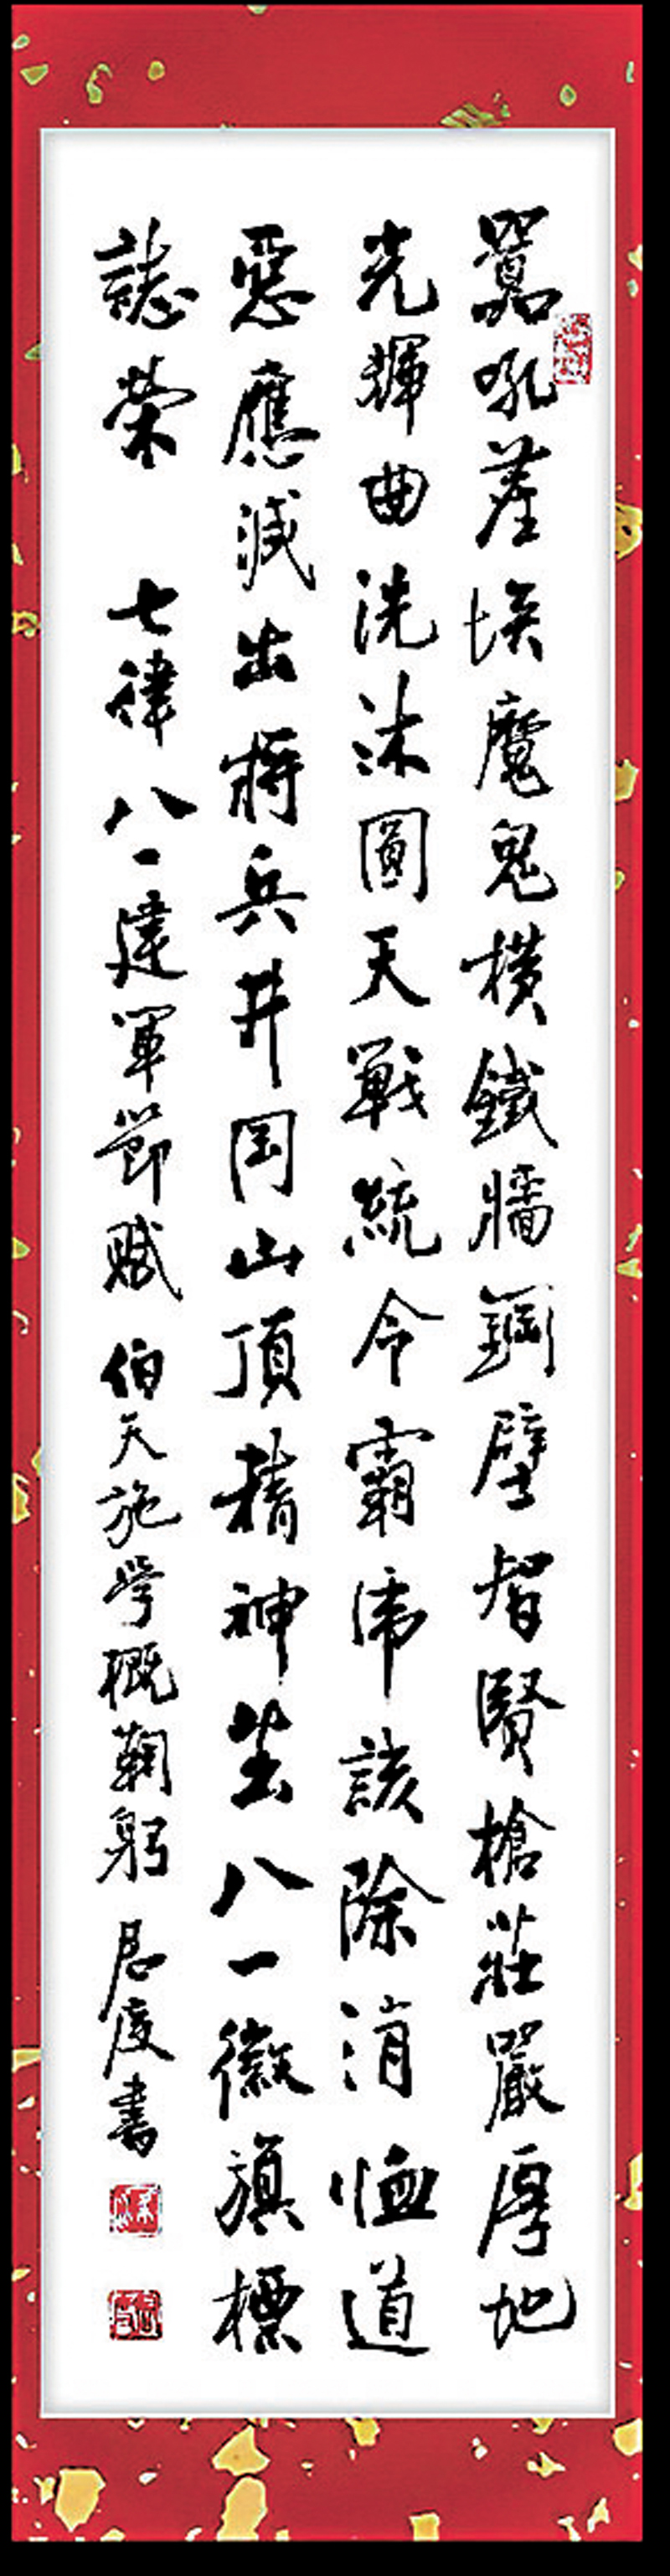 囂吼塵埃魔鬼橫鐵牆鋼壁智賢槍莊嚴厚地
光輝曲洗沐圓天戰統令霸虎該除消恤道
惡應減出將兵井岡山頂精神茁八一徽旗標
誌榮 七律 八一建軍節賦 伯天施學概鞠躬 度書